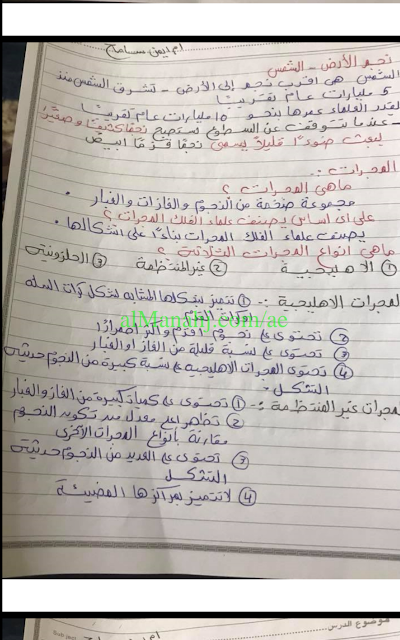 أم أيمن سماحة
نجم الأرض - الشمس
الشمس هي أقرب نجم إلى الأرض - تشرق الشمس منذ
5 مليارات عام تقريبًا
العلماء عمرها بنحو 10 مليارات عام تقريبًا
- عندما تتوقف عن السطوع ستصبح نجمًا كثيفًا وصغيرًا
يبعث ضوءًا قليلاً يسمى نجمًا قزمًا أبيض
المجرات :-
ماهي المجرات ؟
مجموعة ضخمة من النجوم والغازات والغبار .
على أي أساس يصنف علماء الفلك المجرات ؟
يصنف علماء الفلك المجرات بناءً على أشكالها .
ماهي أنواع المجرات الثلاثة ؟
① الاهليجية ② غير المنتظمة ③ الحلزونية
المجرات الاهليجية :- ① تتميز بشكلها المشابه لشكل كرات السلة
أو كرات القدم
almanahj.com/ae
② تحتوي على نجوم أقدم وأكثر احمرارًا
③ تحتوي على نسبة قليلة من الغاز أو الغبار
④ تحتوي المجرات الاهليجية على نسبة كبيرة من النجوم حديثة
التشكل
المجرات غير المنتظمة :- ① تحتوي على كميات كبيرة من الغاز والغبار
② تظهر أعلى معدل عند تكوين النجوم
مقارنة بأنواع المجرات الأخرى
③ تحتوي على العديد من النجوم حديثة
التشكل
④ لا تتميز بمراكزها المضيئة
موضوع الدرس